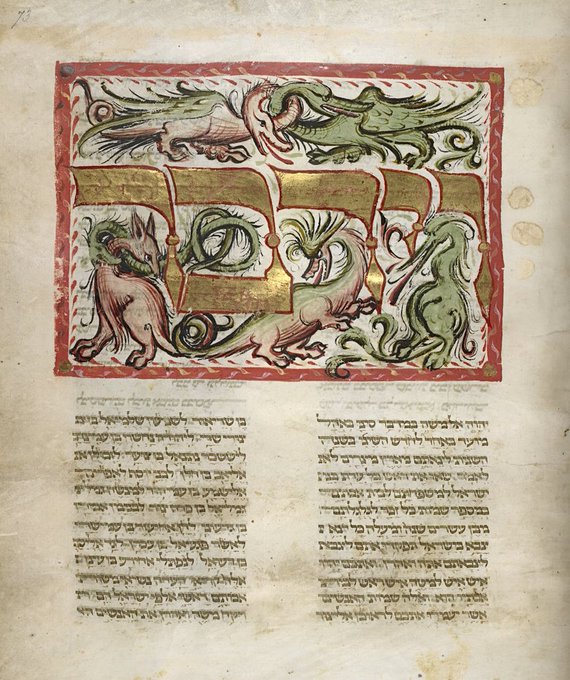 וידבר
יהוה אל משה במדבר סיני באהל
מועד באחד לחדש השני בשנה
השנית לצאתם מארץ מצרים לאמר
שאו את ראש כל עדת בני
ישראל למשפחתם לבית אבתם
במספר שמות כל זכר לגלגלתם
מבן עשרים שנה ומעלה כל יצא
צבא בישראל תפקדו אתם
לצבאתם אתה ואהרן ואתכם יהיו
איש איש למטה איש ראש לבית
אבתיו הוא ואלה שמות האנשים
אשר יעמדו אתכם לראובן אליצור
בן שדיאור לשמעון שלמיאל בן
צורישדי ליהודה נחשון בן עמינדב
ליששכר נתנאל בן צוער לזבולן
אליאב בן חלן לבני יוסף לאפרים
אלישמע בן עמיהוד למנשה
גמליאל בן פדהצור לבנימן אבידן
בן גדעני לדן אחיעזר בן עמישדי
לאשר פגעיאל בן עכרן לגד אליסף
בן דעואל לנפתלי אחירע בן עינן
אלה קרואי העדה נשיאי מטות
אבותם ראשי אלפי ישראל הם